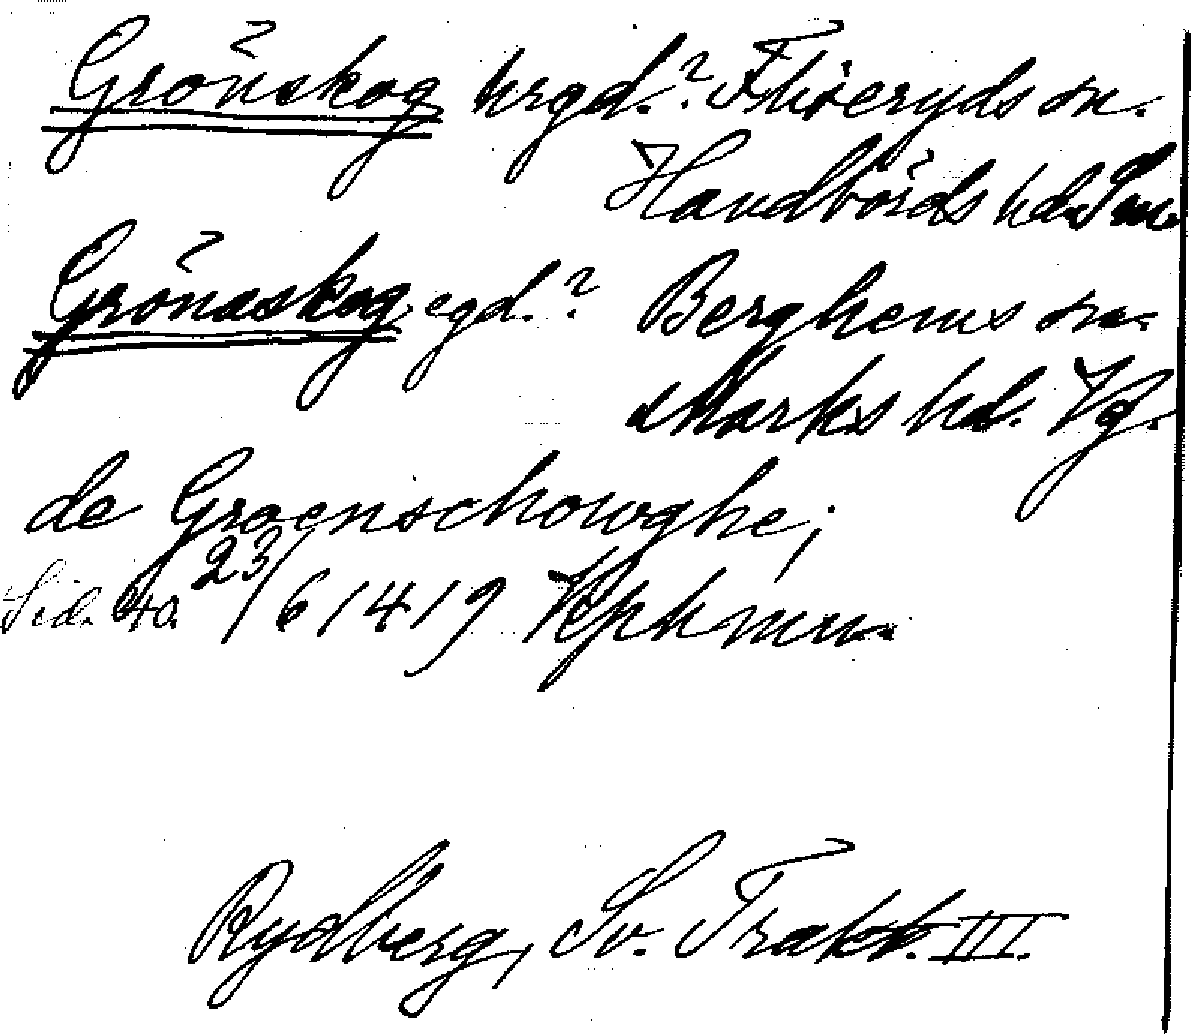 Grönskog hrgd.? Fliseryds sn.
Handbörds hd. Sm.
Grönaskog egd.? Berghems sn.
Marks hd. Vg.
de Groenschowghe;
Sid. 40. 23/6 1419 Kphmn.
Rydberg, Sv. Trakt. III.